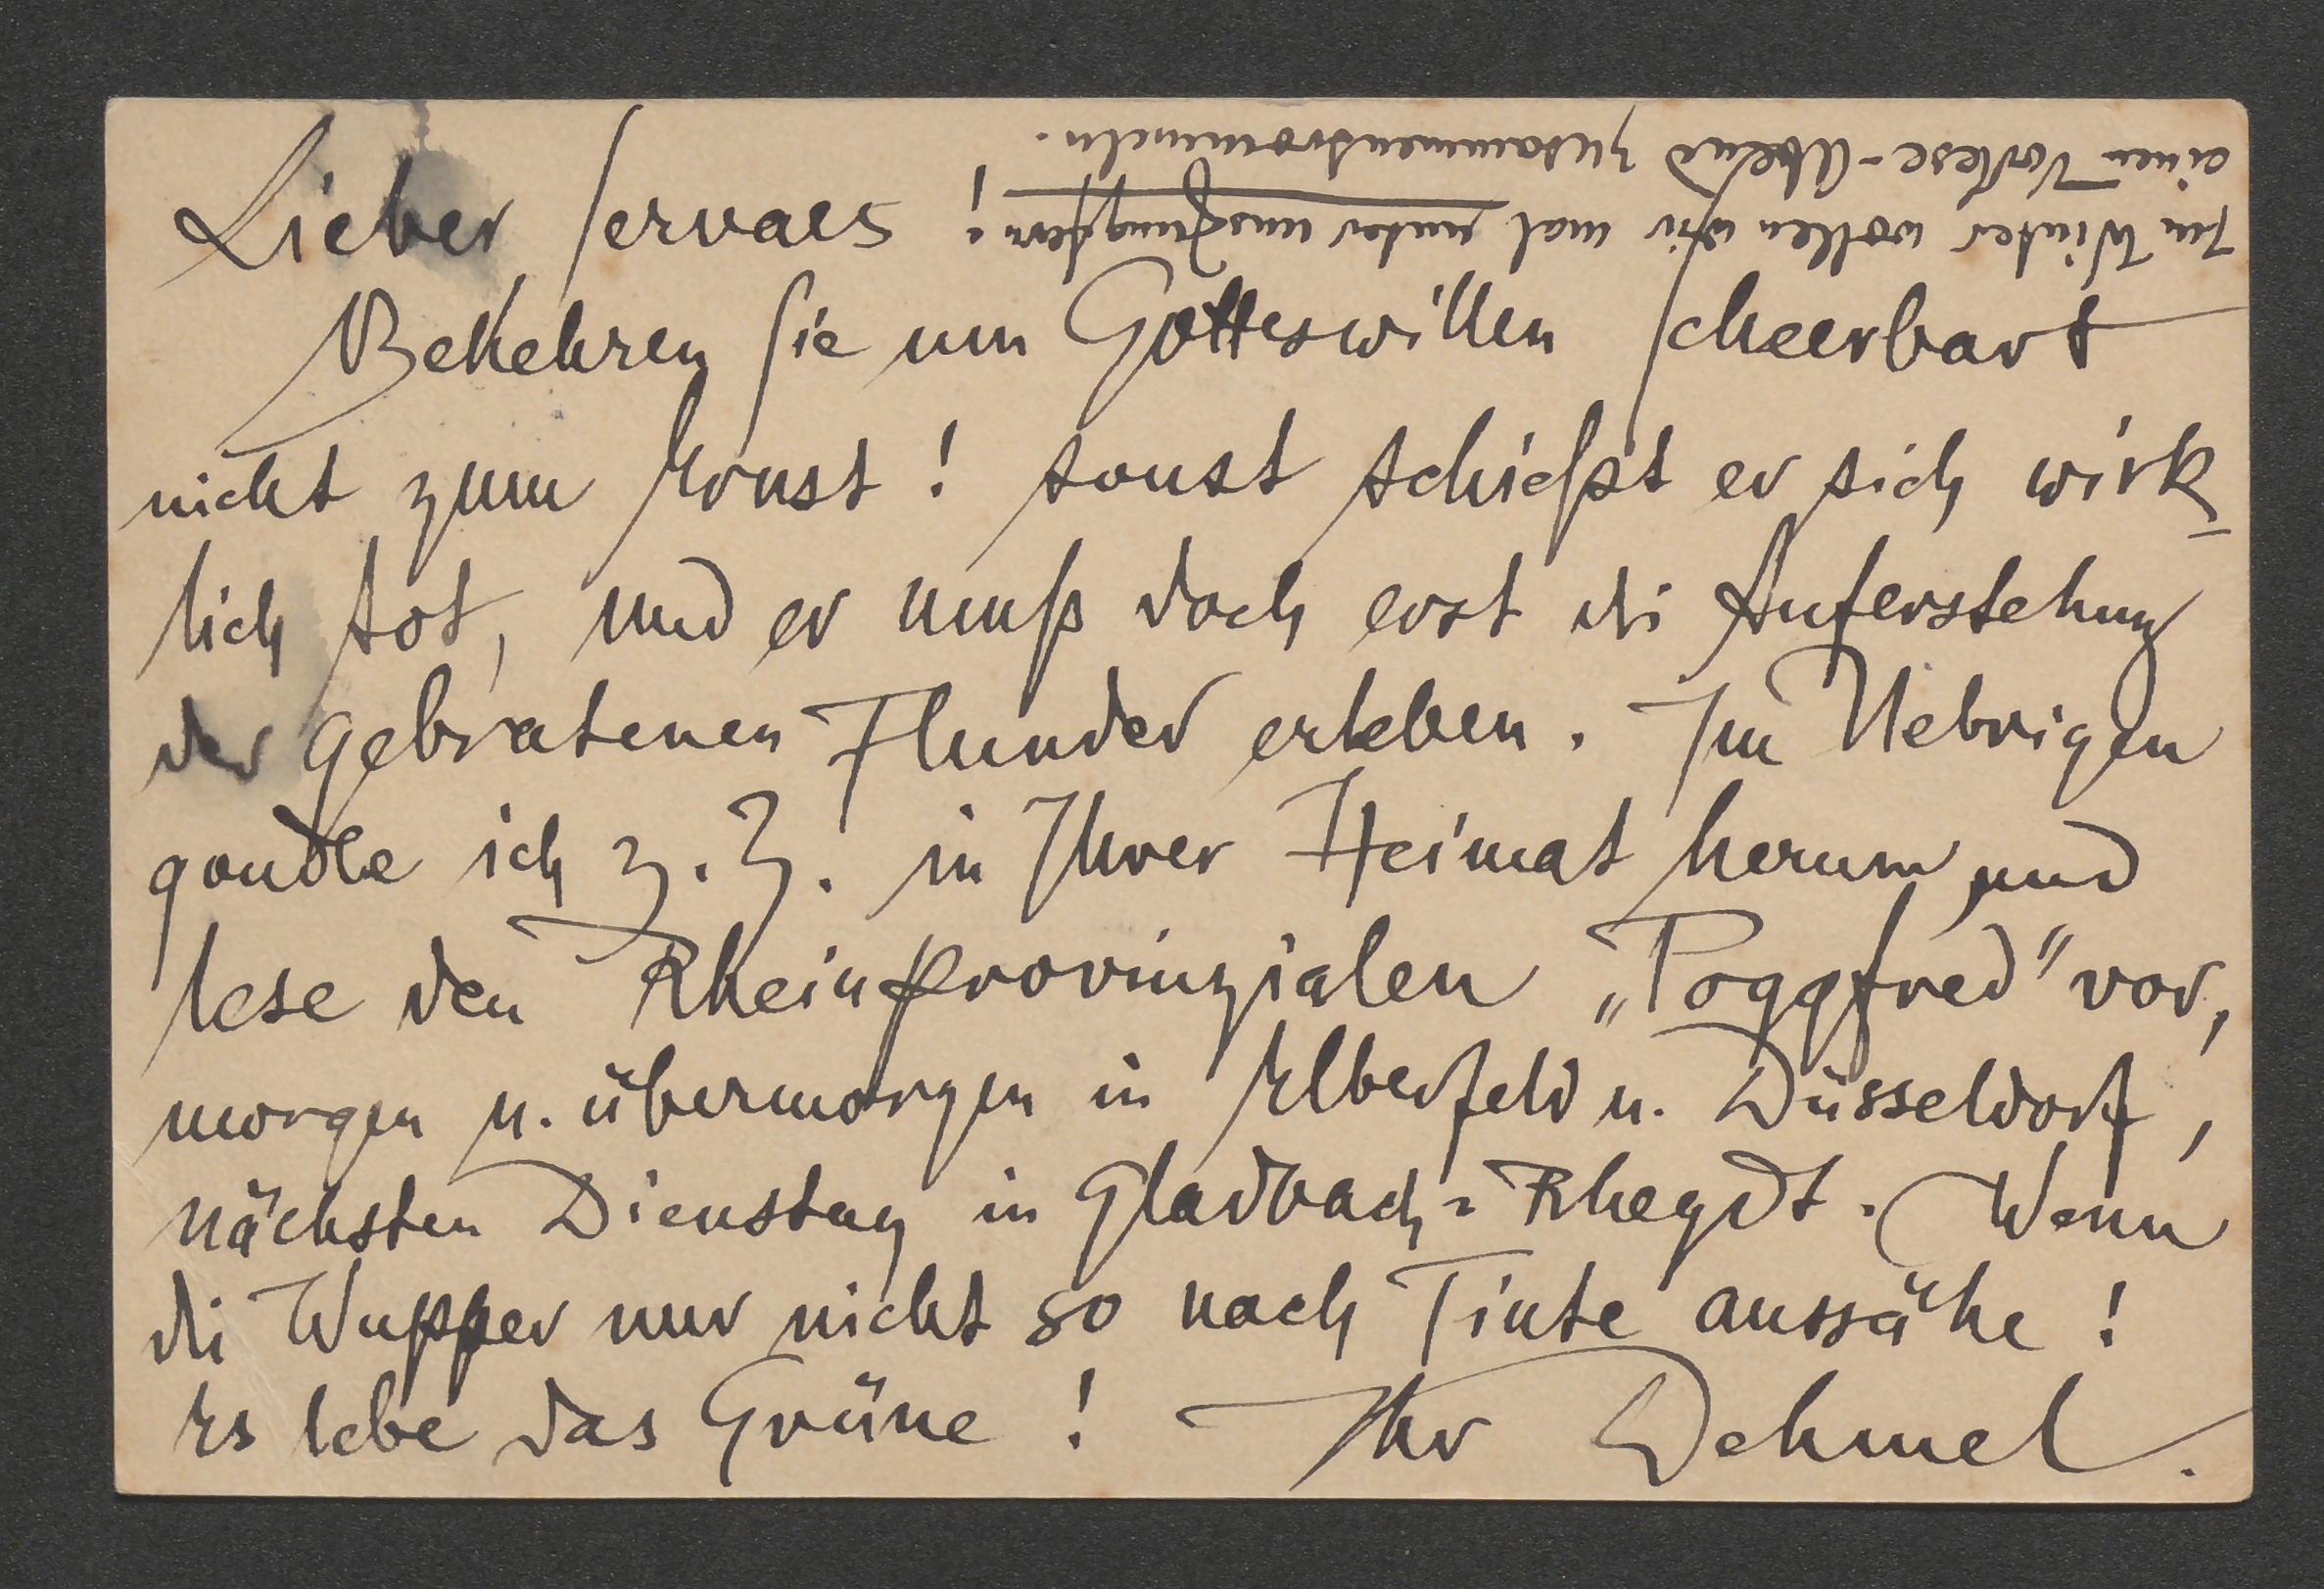 Lieber Servaes!
Bekehren Sie um Gotteswillen Scheerbart
nicht zum Ernst! sonst schießt er sich wirk-
lich tot, und er muß doch erst di Auferstehung
der gebratenen Flunder erleben. Im Uebrigen
gondle ich z. Z. in Ihrer Heimat herum und
lese den Rheinprovinzialen „Poggfred" vor,
morgen u. übermorgen in Elberfeld u. Düsseldorf,
nächsten Dienstag in Gladbach-Rheydt. Wenn
di Wupper nur nicht so nach Tinte aussähe!
Es lebe das Grüne! Ihr Dehmel.
Im Winter wollen wir mal unter uns Jungfern
einen Vorlese-Abend zusammentrommeln.